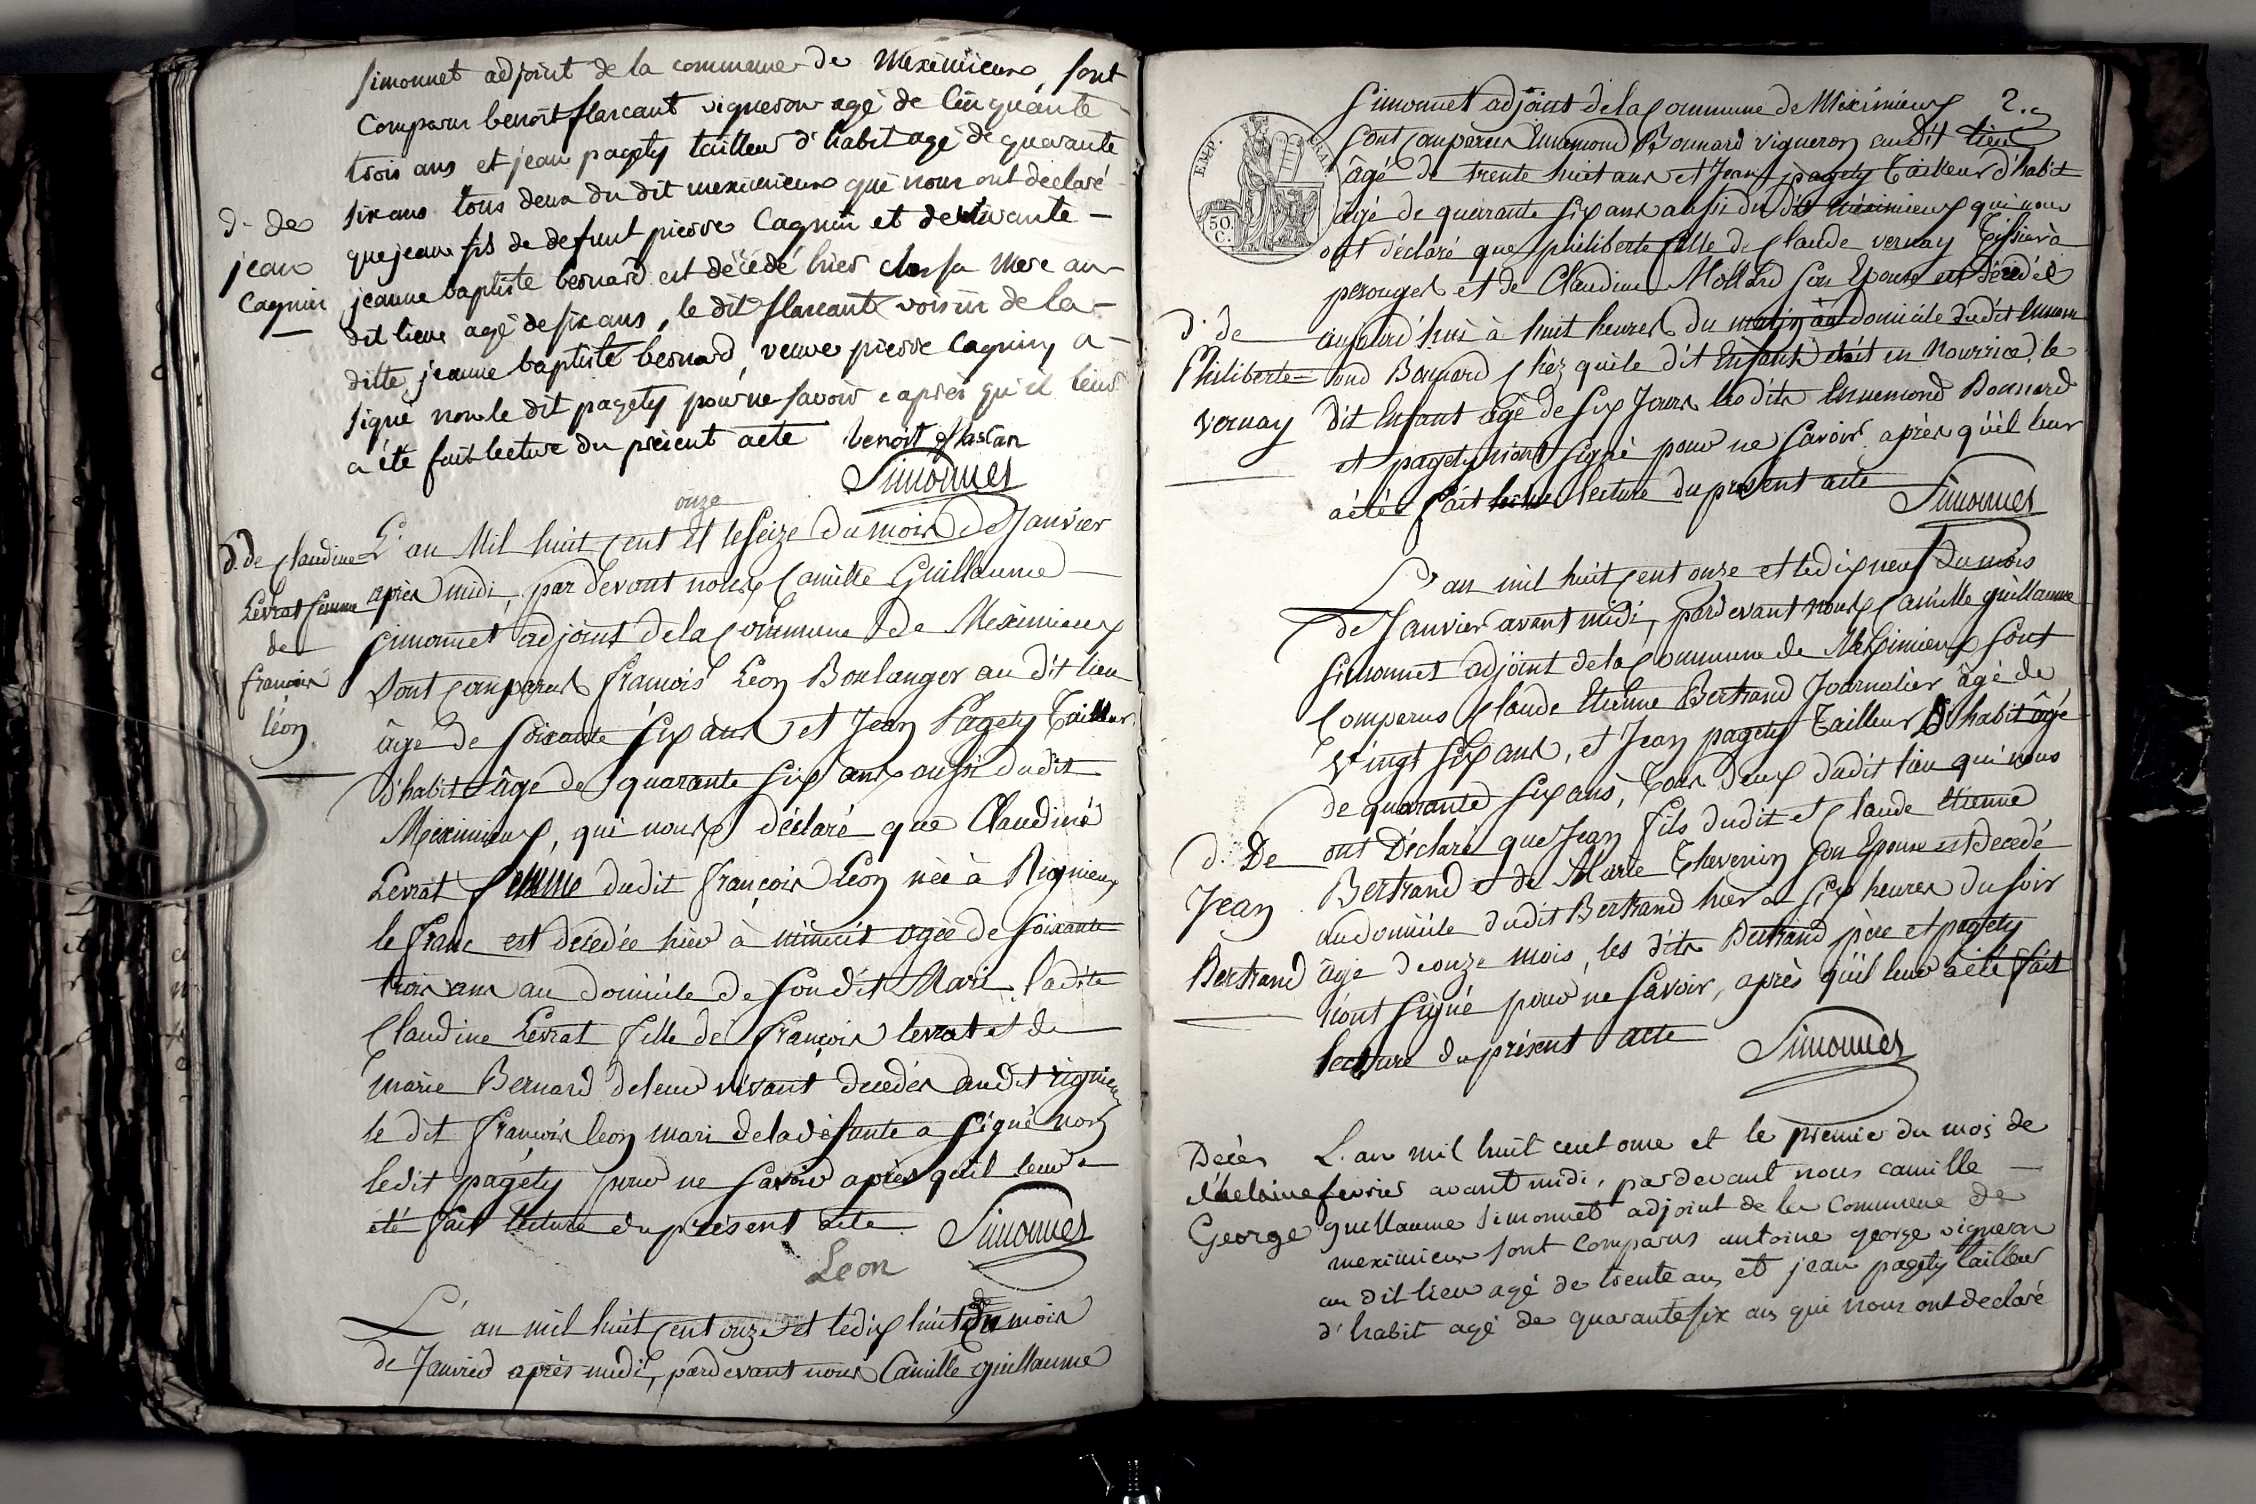 simonnet adjoint de la commune de meximieux, sont
comparus benoit flascant vigneron agé de cinquante
trois ans et jean pagety tailleur d'habit agé de quarante
six ans tous deux du dit meximieux qui nous ont declaré
que jean fils de defunt pierre Cagnin et de vivante
jeanne baptiste bernard est décédé hier chez sa mere au
dit lieu agé de six ans, le dit flascant voisin de la
ditte jeanne baptiste bernard, veuve pierre Cagnin, a
signé non le dit pagety pour ne savoir après qu'il leur
a été fait lecture du présent acte benoit flascan
Simonnet
d. de
jean
Cagnin
onze
L'an Mil huit Cent et le Seize du mois de Janvier
après midi, par devant nous Camille Guillaume
Simonnet adjoint de la Commune de Méximieux
Sont Comparus François Léon Boulanger au dit lieu
âgé de Soixante Six ans et Jean Pagety Tailleur
d'habit âgé de quarante Six ans aussi dudit
Méximieux, qui nous déclaré que Claudine
Levrat femme dudit François Léon née à Rignieux
le franc est décédée hier à minuit agée de Soixante
trois ans au domicile de Son dit Mari, ladite
Claudine Levrat fille de François levrat et de
marie Bernard de leur vivant décédés audit rignieux
le dit François léon mari de la défunte a Signé non
ledit pagety pour ne Savoir après qu'il leur a
été fait lecture du présent acte. Simonnet
Leon
d. de Claudine
Levrat femme
de
françois
léon
L'an mil huit Cent onze et le dix huit du mois
de Janvier après midi, pardevant nous Camille guillaume
2.
EMP. FRAN.
50 C.
Simonnet adjoint de la Commune de Méximieux
Sont Comparus Ennemond Bonnard vigneron audit lieu
âgé de trente huit ans et Jean pagety Tailleur d'habit
âgé de quarante Six ans aussi du dit Méximieux qui nous
ont déclaré que philiberte fille de Claude vernay Tissier à
perouges et de Claudine Mollard Son Epouse est décédée
aujourd'hui à huit heures du matin au domicile dudit Ennem
ond Bonnard Chez qui le dit Enfant était en Nourrice, le
dit Enfant âgé de Six Jours les dits Ennemond Bonnard
et pagety n'ont Signé pour ne Savoir après qu'il leur
a été fait lecture du présent acte Simonnet
d. de
Philiberte
vernay
L'an mil huit Cent onze et le dix neuf du mois
de Janvier avant midi, pardevant nous Camille guillaume
Simonnet adjoint de la Commune de Meximieux Sont
Comparus Claude Etienne Bertrand Journalier âgé de
Vingt Six ans, et Jean pagety Tailleur D'habit âgé
de quarante Six ans, Tous deux dudit lieu qui nous
ont Déclaré que Jean fils dudit et Claude Etienne
Bertrand et de Marie Thevenin Son Epouse est Decedé
au domicile dudit Bertrand hier à Six heures du Soir
âgé de onze mois, les dits Bertrand père et pagety
n'ont Signé pour ne Savoir, après qu'il leur a été fait
lecture du présent acte Simonnet
d. De
Jean
Bertrand
L'an mil huit cent onze et le premier du mois de
fevrier avant midi, pardevant nous camille
guillaume simonnet adjoint de la commune de
meximieux sont comparus antoine george vigneron
au dit lieu agé de trente ans et jean pagety tailleur
d'habit agé de quarante six ans qui nous ont declaré
Décès
George